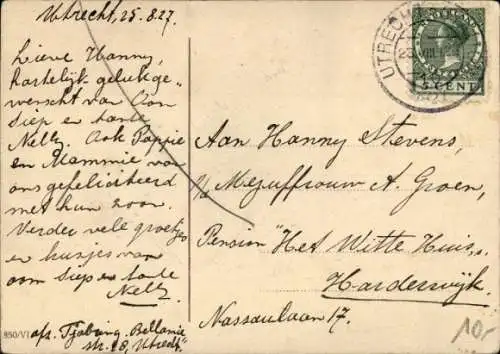 Utrecht, 25.8.27.
Lieve Hanny,
hartelijk geluktge-
wenscht van Oom
Siep en tante
Nelly. Ook Pappie
en Mammie van
ons gefeliciteerd
met hun zoon.
Verder vele groetjes
en kusjes van
oom Siep en tante
Nelly
afz. Tjebing. Bellamie
str. 28, Utrecht.
850/VI
UTRECHT
NEDERLAND
5 CENT
Aan Hanny Stevens,
p/a Mejuffrouw A. Groen,
Pension "Het Witte Huis",
Harderwijk.
Nassaulaan 17.
10,-